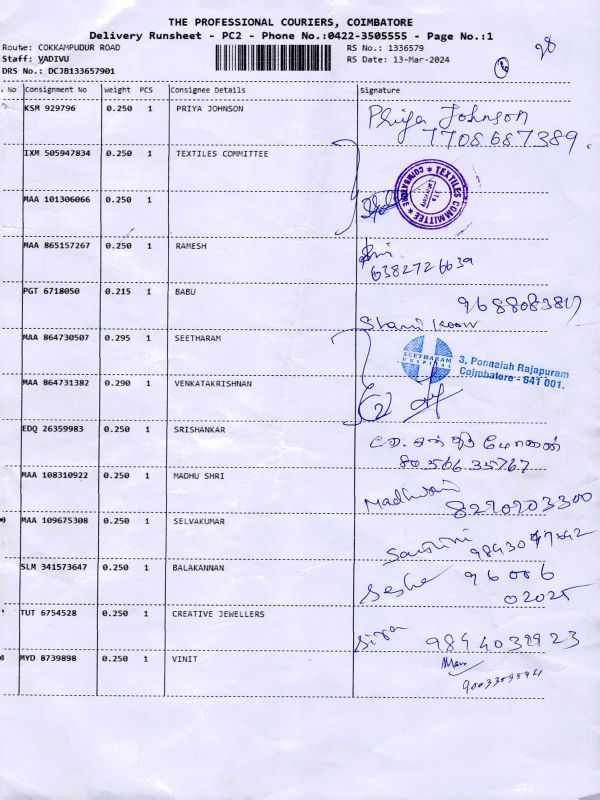 THE PROFESSIONAL COURIERS, COIMBATORE
Delivery Runsheet - PC2 - Phone No.:0422-3505555 - Page No.:1
Route: COKKAMPUDUR ROAD RS No.: 1336579
Staff: VADIVU RS Date: 13-Mar-2024
DRS No.: DCJB133657901
28
No Consignment No Weight PCS Consignee Details Signature
KSM 929796 0.250 1 PRIYA JOHNSON Priya Johnson
7708687389.
IXM 505947834 0.250 1 TEXTILES COMMITTEE
TEXTILES COMMITTEE
MAA 101306066 0.250 1
MAA 865157267 0.250 1 RAMESH
6382726639
PGT 6718050 0.215 1 BABU
MAA 864730507 0.295 1 SEETHARAM
SEETHARAM
HOSPITAL
3, Ponnaiah Rajapuram
Coimbatore - 641 001.
MAA 864731382 0.290 1 VENKATAKRISHNAN
(2)
EDQ 26359983 0.250 1 SRISHANKAR
80566 35767
MAA 108310922 0.250 1 MADHU SHRI
8270703300
MAA 109675308 0.250 1 SELVAKUMAR
SLM 341573647 0.250 1 BALAKANNAN 96006
02025
TUT 6754528 0.250 1 CREATIVE JEWELLERS
Siva
MYD 8739898 0.250 1 VINIT